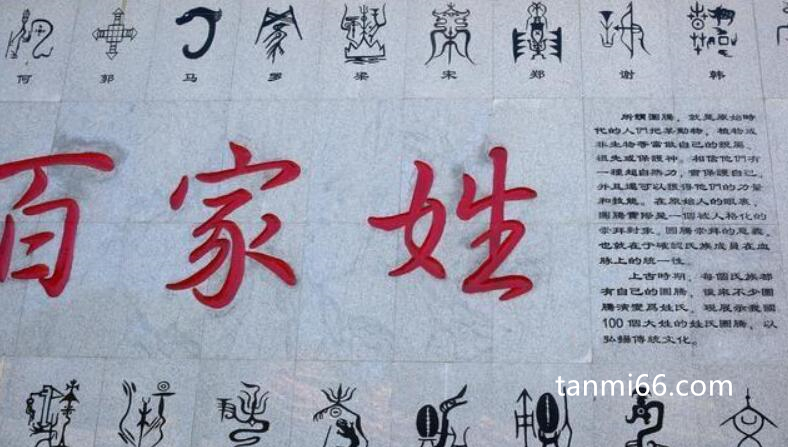 何 郭 马 罗 梁 宋 郑 谢 韩
百家姓
所謂圖騰，就是原始時
代的人們把某動物，植物或
非生物等當做自己的親屬、
祖先或保護神。相信他們有
一種超自然力，會保護自己，
并且還可以獲得他們的力量
和技能。在原始人的眼裏，
圖騰實際是一個被人格化的
崇拜對象。圖騰崇拜的意義，
也就在于確認氏族成員在血
脉上的統一性。
上古時期，每個氏族都
有自己的圖騰，後來不少圖
騰演變爲姓氏，現展示我國
100個大姓的姓氏圖騰，以
弘揚傳統文化。
tanmi66.com